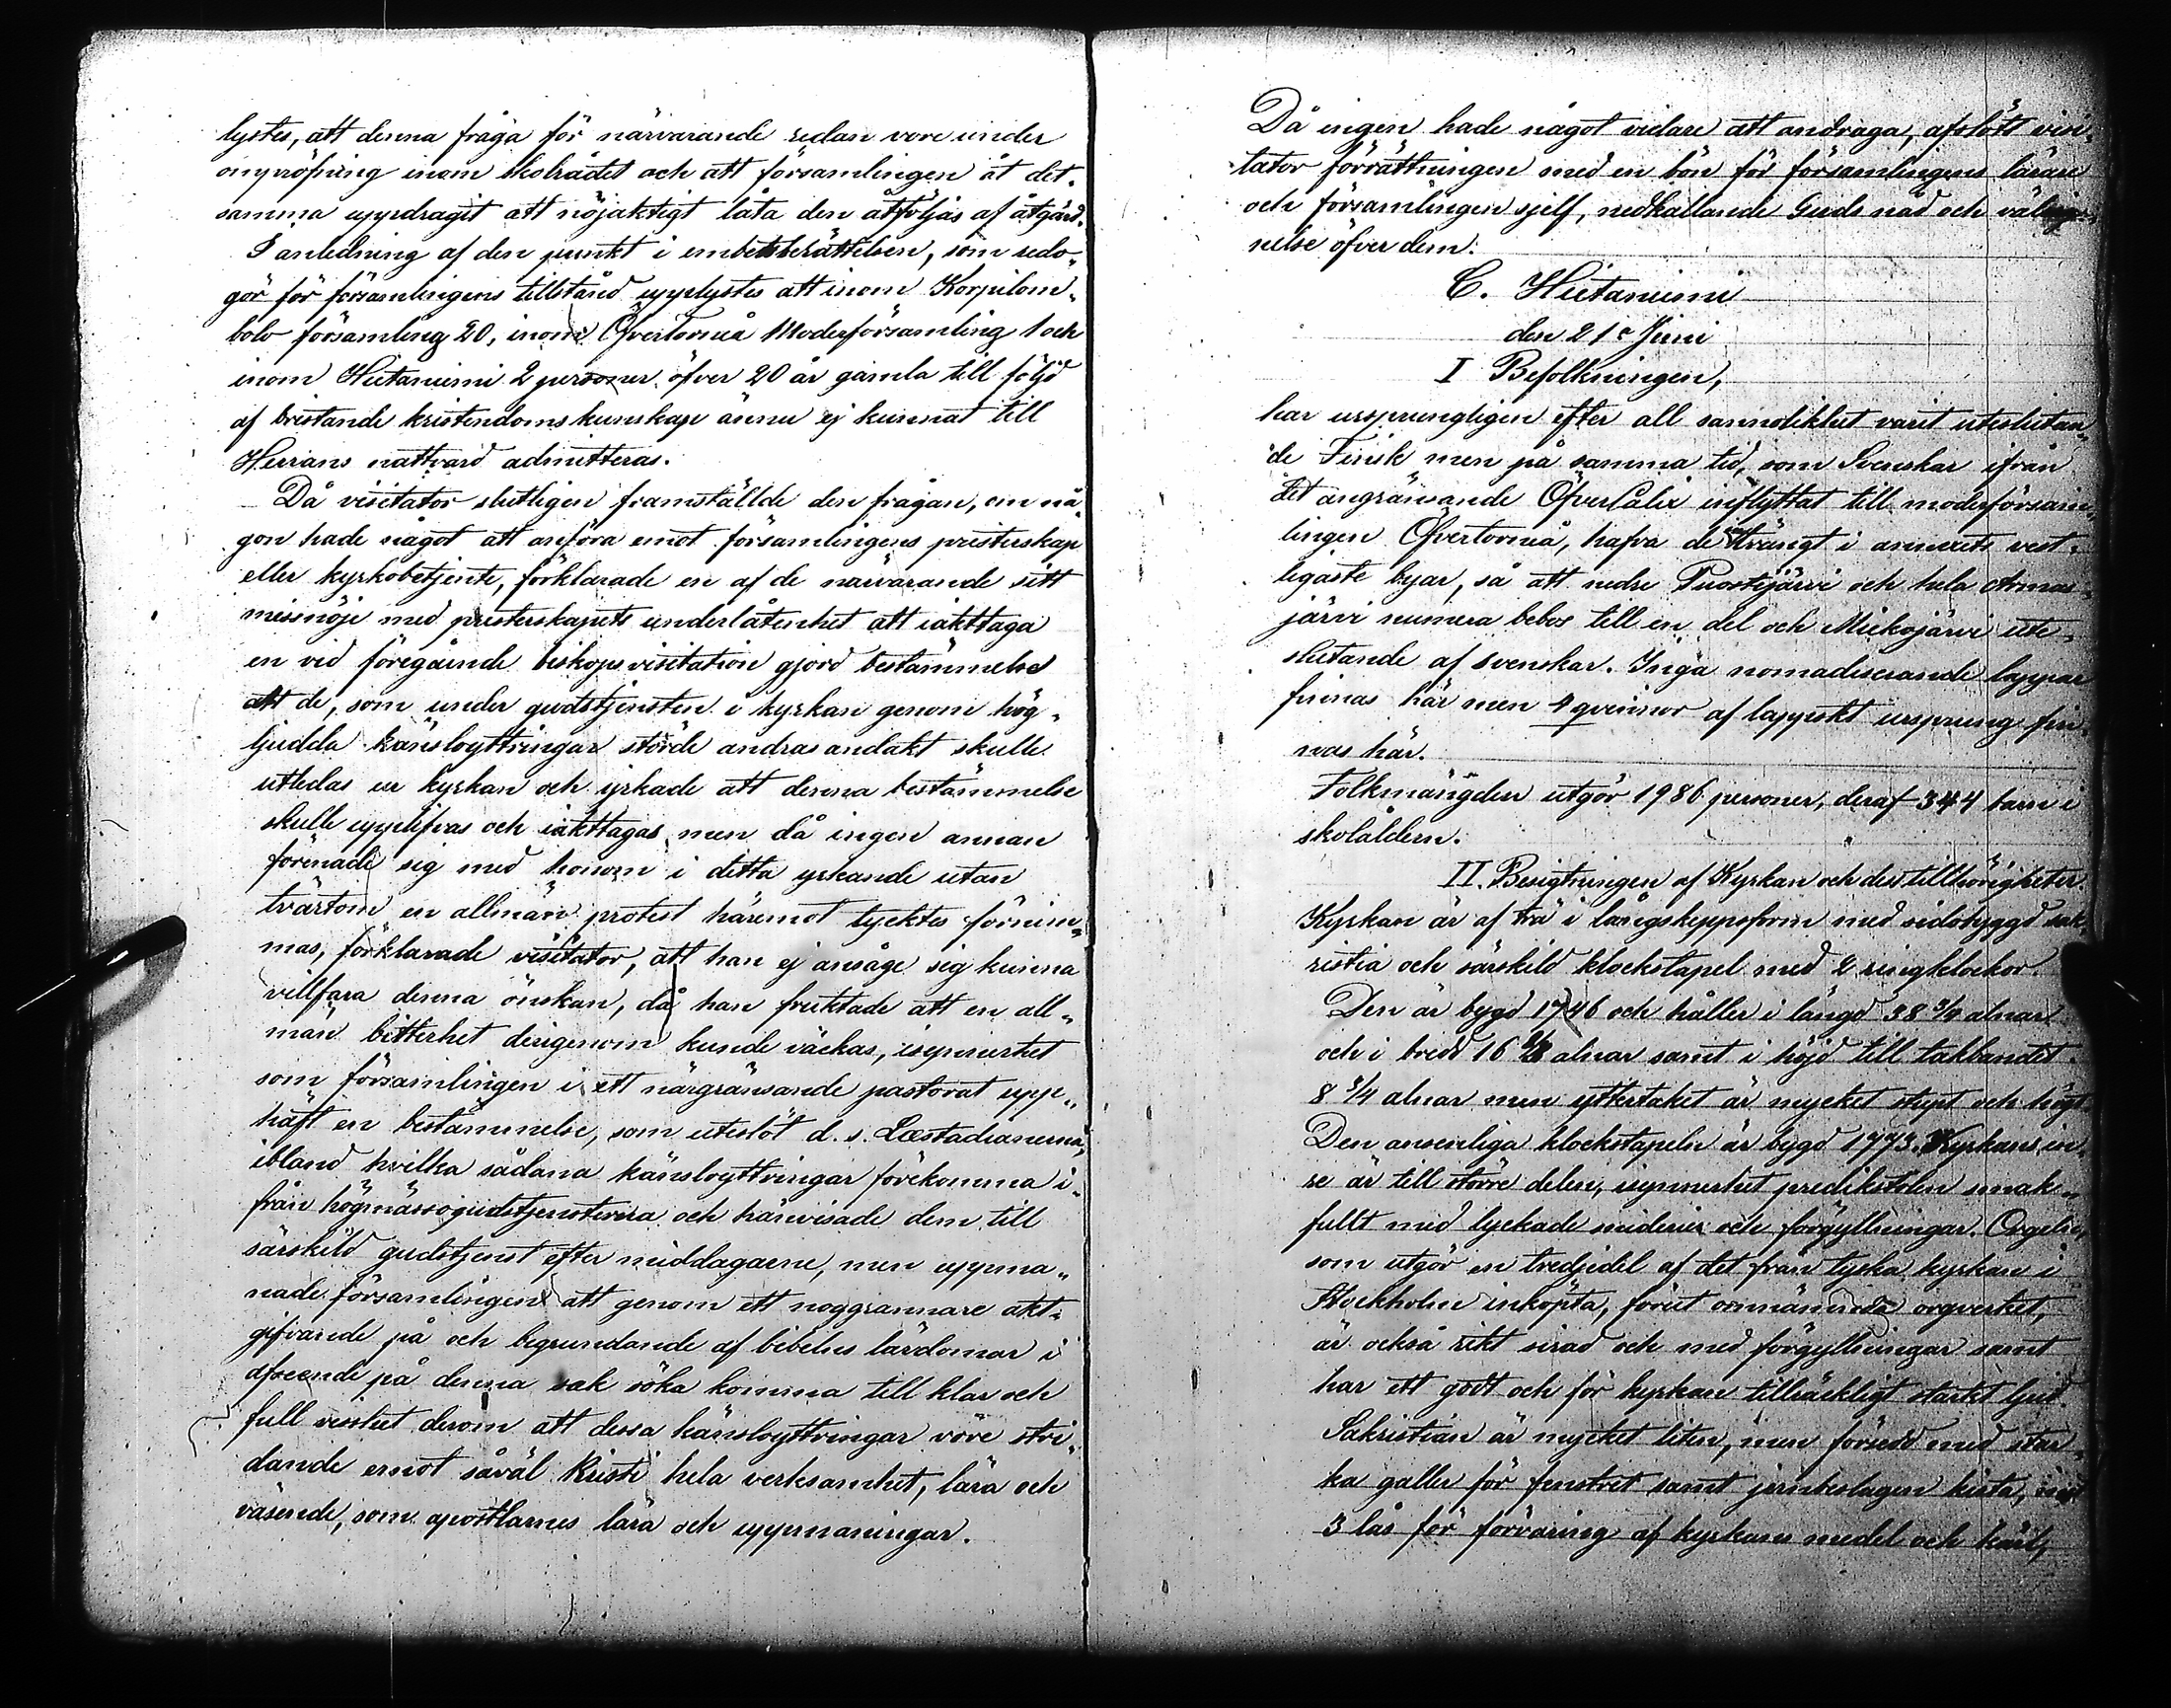 lystes, att denna fråga för närvarande redan vore under
ompröfning inom skolrådet och att församlingen åt det-
samma uppdragit att nöjaktigt låta den åtföljas af åtgärd.
I anledning af den punkt i embetsberättelsen, som redo-
gör för församlingens tillstånd upplystes att inom Korpilom-
bolo församling 20, inom Öfvertorneå Moderförsamling 1 och
inom Hietaniemi 2 personer öfver 20 år gamla till följd
af bristande kristendomskunskap ännu ej kunnat till
Herrans nattvard admitteras.
Då visitator slutligen framställde den frågan, om nå-
gon hade något att anföra emot församlingens presterskap
eller kyrkobetjente, förklarade en af de närvarande sitt
missnöje med presterskapets underlåtenhet att iakttaga
en vid föregående biskopsvisitation gjord bestämmelse
att de, som under gudstjensten i kyrkan genom hög-
ljudda känsloyttringar störde andras andakt skulle
utledas ur kyrkan och yrkade att denna bestämmelse
skulle upplifvas och iakttagas, men då ingen annan
förenade sig med honom i detta yrkande utan
tvärtom en allmän protest häremot tycktes förnim-
mas, förklarade visitator, att han ej ansåge sig kunna
villfara denna önskan, då han fruktade att en all-
män bitterhet derigenom kunde väckas, isynnerhet
som församlingen i ett närgränsande pastorat upp-
häft en bestämmelse, som uteslöt d. s. Læstadianerna,
ibland hvilka sådana känsloyttringar förekomma i-
från högmässogudstjensterna och hänvisade dem till
särskild gudstjenst efter middagarne, men uppma-
nade församlingen att genom ett noggrannare akt-
gifvande på och begrundande af bibelns lärdomar i
afseende på denna sak söka komma till klar och
full visshet derom att dessa känsloyttringar vore stri-
dande emot såväl Kristi hela verksamhet, lära och
väsende, som apostlarnes lära och uppmaningar.
Då ingen hade något vidare att andraga, afslöts visi-
tator förrättningen med en bön för församlingens lärare
och församlingen sjelf, nedkallande Guds nåd och välsig-
nelse öfver dem.
C. Hietaniemi
den 21e Juni
I Befolkningen,
har ursprungligen efter all sannolikhet varit uteslutan-
de Finsk men på samma tid, som Svenskar ifrån
det angränsande Öfvercalix inflyttat till moderförsam-
lingen Öfvertorneå, hafva de trängt i annexets vest-
ligaste byar, så att nedre Puostijärvi och hela Armas-
järvi numera bebos till en del och Miekojärvi ute-
slutande af svenskar. Inga nomadiserande lappar
finnas här men 4 qvinnor af lappskt ursprung fin-
nas här.
Folkmängden utgör 1986 personer, deraf 344 barn i
skolåldern.
II. Besigtningen af Kyrkan och dess tillhörigheter.
Kyrkan är af trä i långskeppsform med sidobyggd sak-
ristia och särskild klockstapel med 2 ringklockor.
Den är bygd 1746 och håller i längd 38 3/4 alnar
och i bredd 16 alnar samt i höjd till takbandet
8 3/4 alnar men yttertaket är mycket stupt och högt.
Den ansenliga klockstapeln är bygd 1773. Kyrkans in-
re är till större delen, isynnerhet predikstolen smak-
fullt med lyckade sniderier och förgyllningar. Orgeln,
som utgör en tredjedel af det från tyska kyrkan i
Stockholm inköpta, förut omnämnda orgverket,
är också rikt sirad och med förgyllningar samt
har ett godt och för kyrkan tillräckligt starkt ljud.
Sakristian är mycket liten, men försedd med star-
ka galler för fenstret samt jernbeslagen kista, med
3 lås för förvaring af kyrkans medel och kärl,